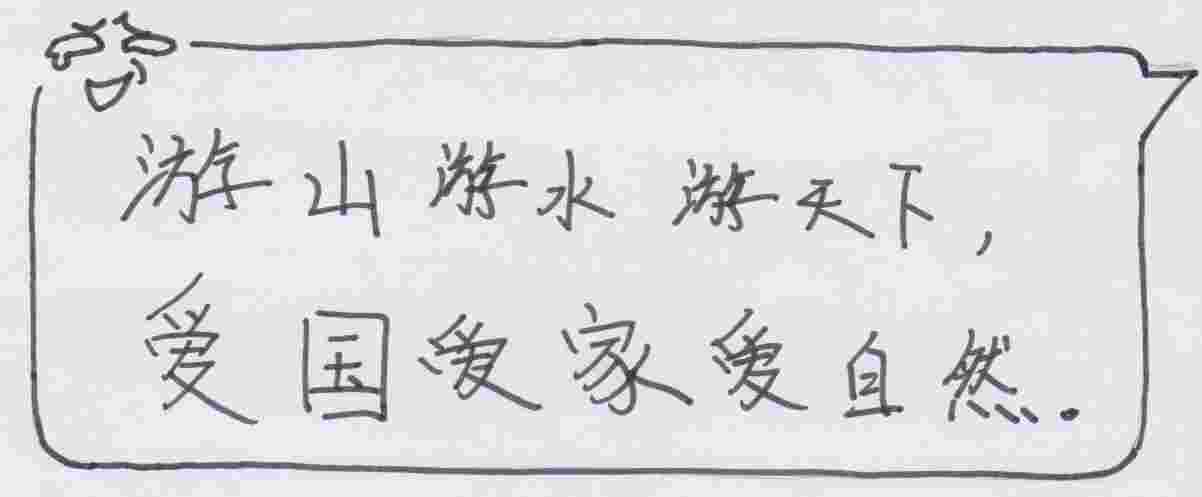 游山游水游天下，
爱国爱家爱自然.